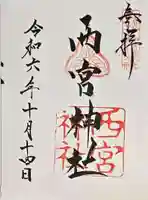 奉拝
西宮神社
令和六年十月十四日
西宮
神社